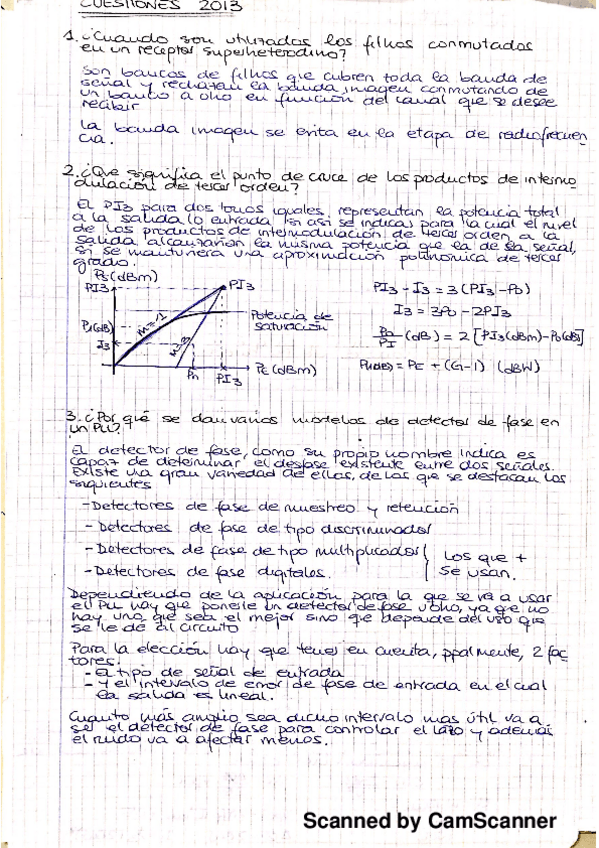 CUESTIONES 2013
1. ¿Cuando son utilizados los filtros conmutados
en un receptor superheterodino?
Son bancos de filtros que cubren toda la banda de
señal y rechazan la banda imagen conmutando de
un banco a otro en función del canal que se desee
recibir
La banda imagen se evita en la etapa de radiofrecuen
cia.
2. ¿Que significa el punto de cruce de los productos de intermo
dulación de tercer orden?
El PI3 para dos tonos iguales, representan la potencia total
a la salida (o entrada si así se indica) para la cual el nivel
de los productos de intermodulación de tercer orden a la
salida alcanzarían la misma potencia que la de la señal,
si se mantuviera una aproximación polinómica de tercer
grado.
Ps(dBm)
PI3
PI3
P1(dB)
I3
m=1
m=3
Potencia de
saturación
Pn
PI3
PE(dBm)
PI3 - I3 = 3(PI3 - Po)
I3 = 3Po - 2PI3
Po/PI (dB) = 2[PI3(dBm)-Po(dB)]
P1(dB) = PE + (G-1) (dBW)
3. ¿Por qué se dan varios modelos de detector de fase en
un PLL?
El detector de fase, como su propio nombre indica es
capaz de determinar el desfase existente entre dos señales.
Existe una gran variedad de ellos, de los que se destacan los
siguientes
- Detectores de fase de muestreo y retención
- Detectores de fase de tipo discriminador
- Detectores de fase de tipo multiplicador
- Detectores de fase digitales.
Los que +
se usan.
Dependiendo de la aplicación para la que se va a usar
el PLL hay que ponerle un detector de fase u otro, ya que no
hay uno que sea el mejor sino que depende del uso que
se le dé al circuito
Para la elección hay que tener en cuenta, ppalmente, 2 fac
tores:
- El tipo de señal de entrada
- Y el intervalo de error de fase de entrada en el cual
la salida es lineal.
Cuanto más amplio sea dicho intervalo mas útil va a
ser el detector de fase para controlar el lazo y además
el ruido va a afectar menos.
Scanned by CamScanner